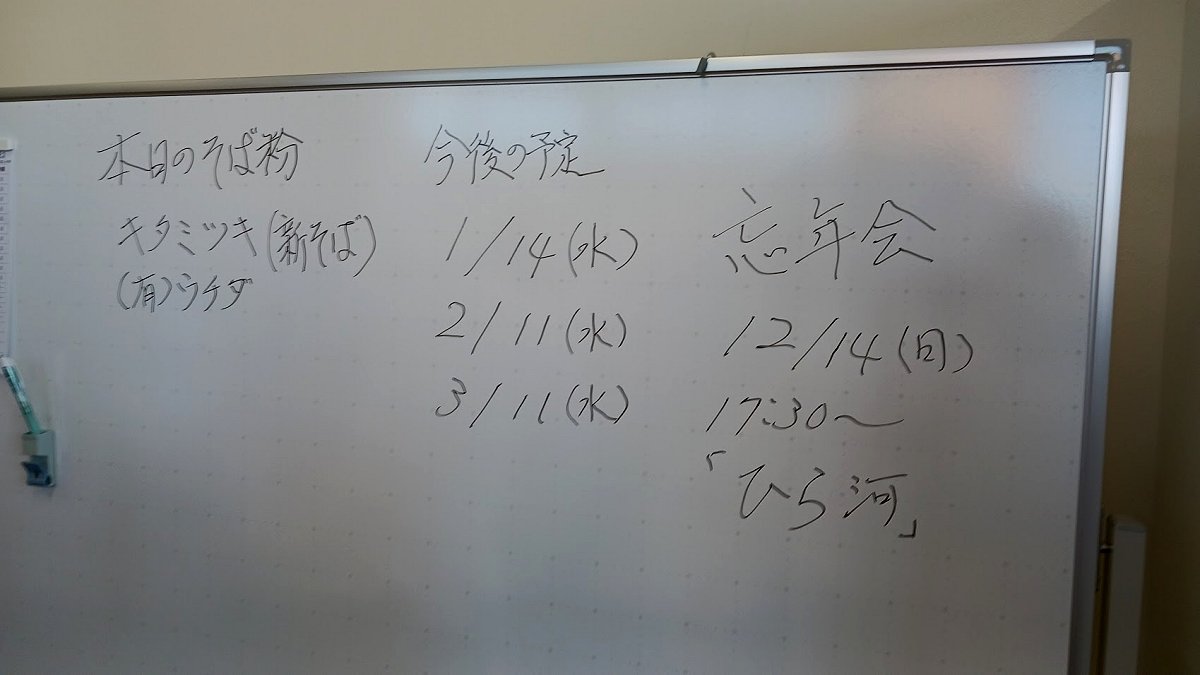 本日のそば粉
キタミツキ(新そば)
(有)ウチダ
今後の予定
1/14(水)
2/11(水)
3/11(水)
忘年会
12/14(日)
17:30〜
「ひら河」